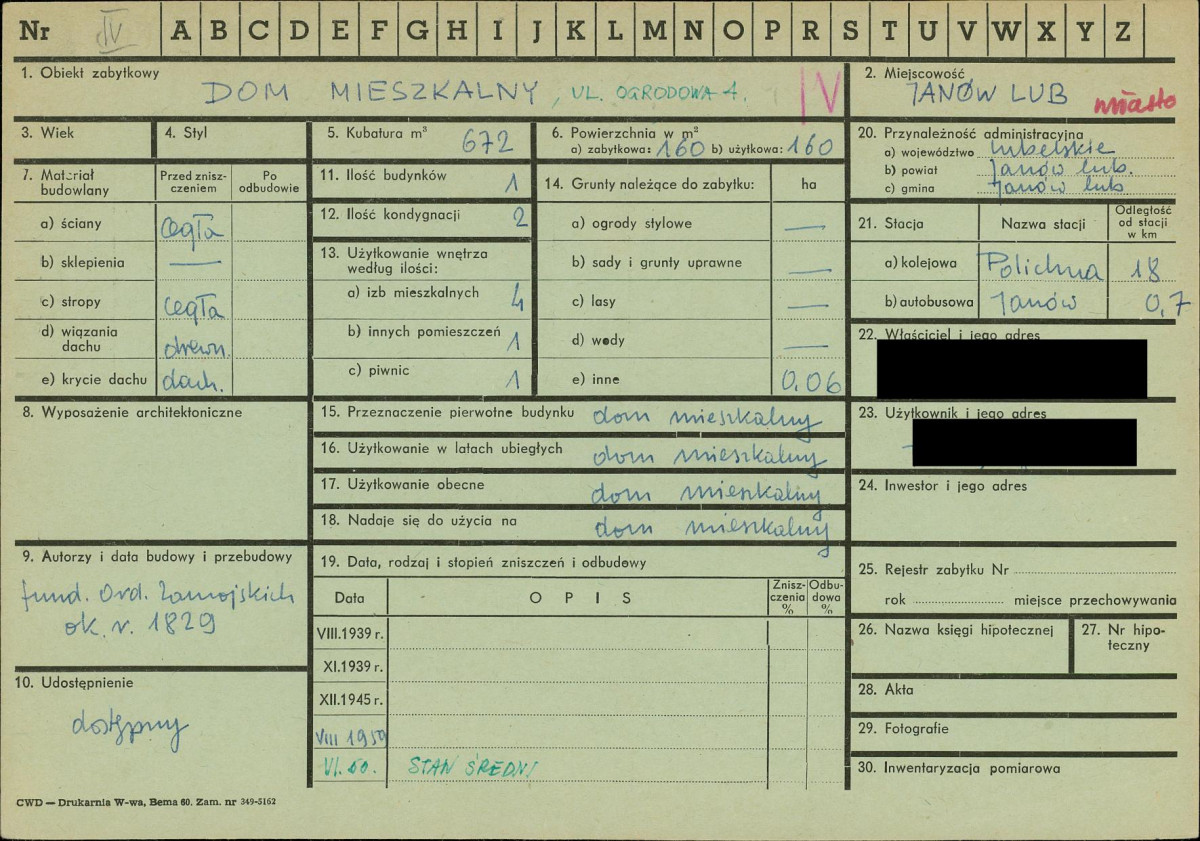 Nr IV A B C D E F G H I J K L M N O P R S T U V W X Y Z
1. Obiekt zabytkowy
DOM MIESZKALNY, UL. OGRODOWA 4. IV
2. Miejscowość
JANÓW LUB miasto
3. Wiek
4. Styl
5. Kubatura m³ 672
6. Powierzchnia w m²
a) zabytkowa: 160 b) użytkowa: 160
20. Przynależność administracyjna
a) województwo lubelskie
b) powiat Janów lub.
c) gmina Janów lub.
7. Materiał budowlany
Przed zniszczeniem
Po odbudowie
a) ściany cegła
b) sklepienia —
c) stropy cegła
d) wiązania dachu drewn.
e) krycie dachu dach.
11. Ilość budynków 1
12. Ilość kondygnacji 2
13. Użytkowanie wnętrza
według ilości:
a) izb mieszkalnych 4
b) innych pomieszczeń 1
c) piwnic 1
14. Grunty należące do zabytku: ha
a) ogrody stylowe —
b) sady i grunty uprawne —
c) lasy —
d) wody —
e) inne 0,06
21. Stacja
Nazwa stacji
Odległość
od stacji
w km
a) kolejowa Polichna 18
b) autobusowa Janów 0,7
22. Właściciel i jego adres
23. Użytkownik i jego adres
24. Inwestor i jego adres
8. Wyposażenie architektoniczne
15. Przeznaczenie pierwotne budynku dom mieszkalny
16. Użytkowanie w latach ubiegłych dom mieszkalny
17. Użytkowanie obecne dom mieszkalny
18. Nadaje się do użycia na dom mieszkalny
9. Autorzy i data budowy i przebudowy
fund. Ord. Zamojskich
ok. r. 1829
10. Udostępnienie
dostępny
19. Data, rodzaj i stopień zniszczeń i odbudowy
Data
OPIS
Zniszczenia %
Odbudowa %
VIII.1939 r.
XI.1939 r.
XII.1945 r.
VIII 1959
VI.60. STAN ŚREDNI
25. Rejestr zabytku Nr
rok miejsce przechowywania
26. Nazwa księgi hipotecznej
27. Nr hipoteczny
28. Akta
29. Fotografie
30. Inwentaryzacja pomiarowa
CWD — Drukarnia W-wa, Bema 60. Zam. nr 349-5162